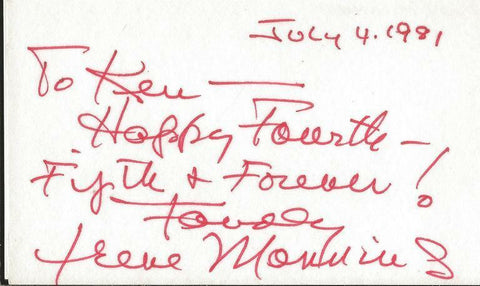 July 4. 1981
To Ken —
Happy Fourth —
Fifth & Forever!
Fondly
Irene Manning